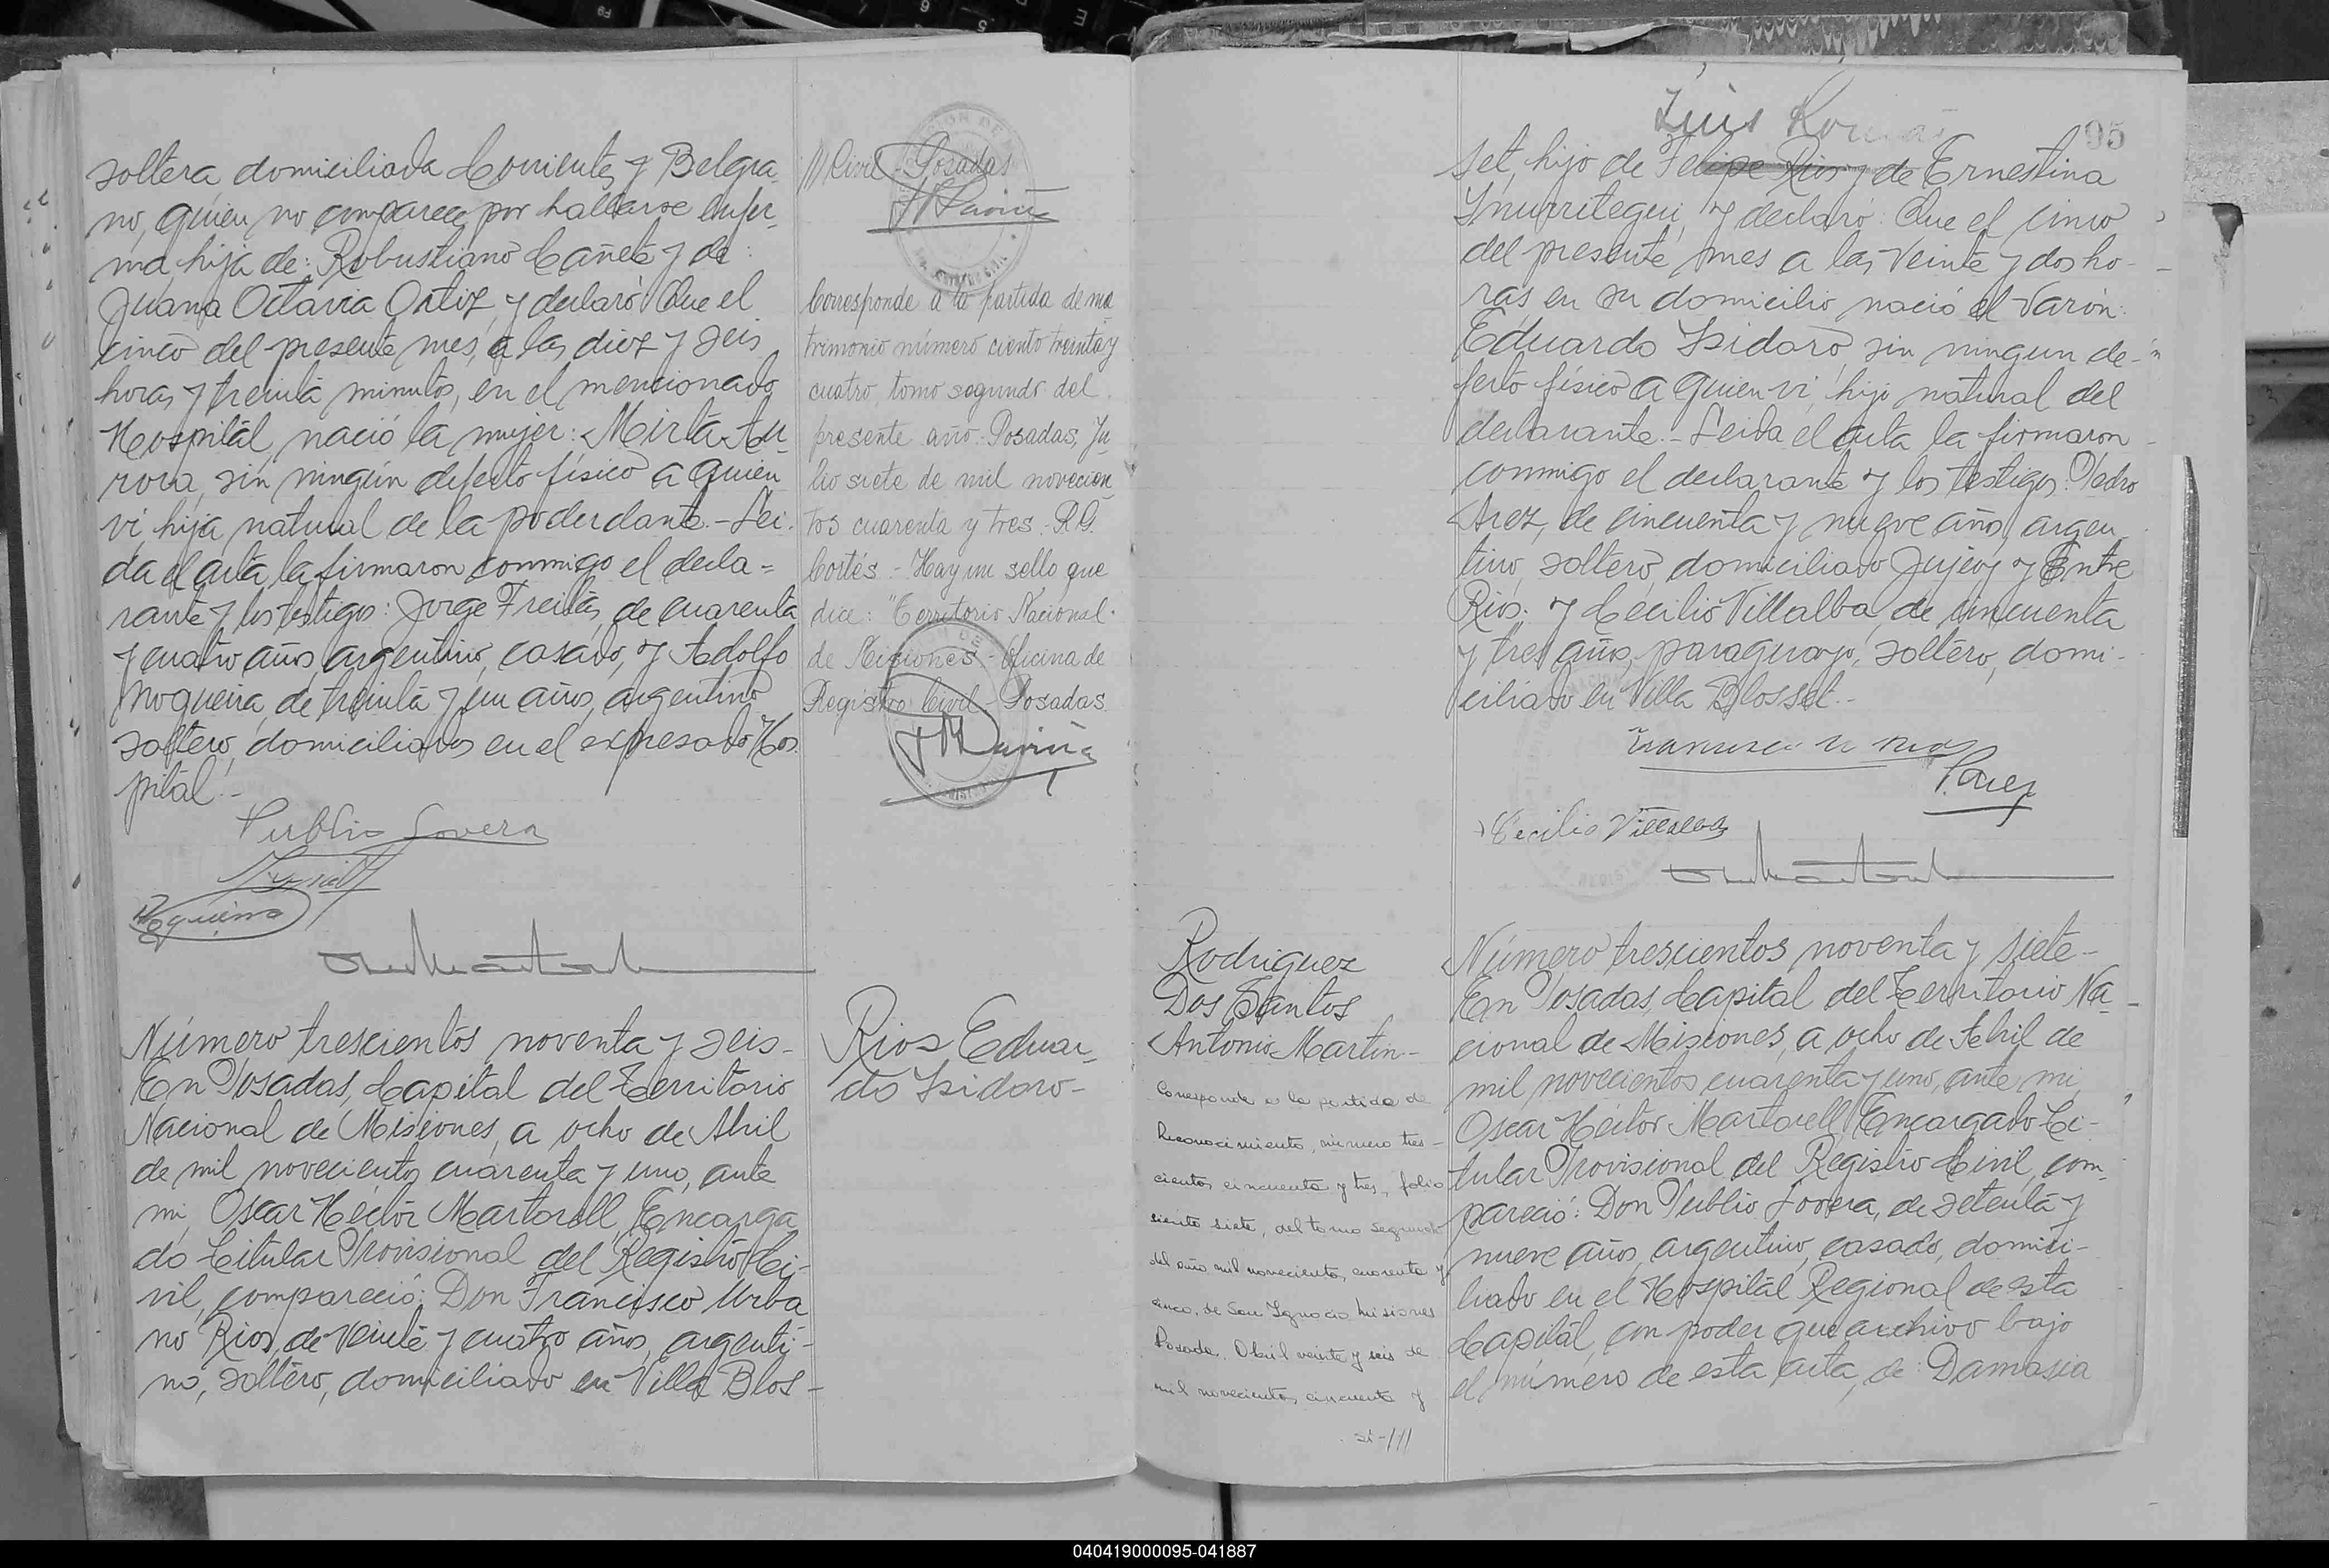 soltera domiciliada Corrientes y Belgra-
no, quien no comparece por hallarse enfer-
ma, hija de: Robustiano Cañete y de:
Juana Octavia Ortiz, y declaró: Que el
cinco del presente mes, a las diez y seis
horas y treinta minutos, en el mencionado
Hospital, nació la mujer: Mirta Au-
rora, sin ningún defecto físico a quien
vi, hija natural de la poderdante.- Lei-
da el acta la firmaron conmigo el decla=
rante y los testigos: Jorge Freitas, de cuarenta
y cuatro años, argentino, casado, y Adolfo
Nogueira, de treinta y un años, argentino
soltero, domiciliados en el expresado Hos-
pital.-
Publio Lovera
Nogueira
Número trescientos noventa y seis-
En Posadas, Capital del Territorio
Nacional de Misiones, a ocho de Abril
de mil novecientos cuarenta y uno, ante
mi, Oscar Héctor Martorell, Encarga
do Titular Provisional del Registro Ci-
vil, compareció: Don Francisco Urba
no Rios, de veinte y cuatro años, argenti-
no, soltero, domiciliado en Villa Blos-
/// Civil Posadas
Corresponde a la partida de ma
trimonio número ciento treinta y
cuatro, tomo segundo del
presente año.- Posadas, Ju-
lio siete de mil novecien
tos cuarenta y tres.- R.G.
Cortés.- Hay un sello que
dice: "Territorio Nacional
de Misiones - Oficina de
Registro Civil - Posadas
Rios, Eduar-
do Isidoro-
Luis
95
set, hijo de Felipe Rios y de Ernestina
Ynurritegui, y declaró: Que el cinco
del presente mes a las veinte y dos ho-
ras en su domicilio nació el varón:
Eduardo Isidoro, sin ningun de-
fecto físico a quien vi, hijo natural del
declarante.- Leida el acta la firmaron
conmigo el declarante y los testigos: Pedro
Arez, de cincuenta y nueve años, argen-
tino, soltero, domiciliado Jujuy y Entre
Rios; y Cecilio Villalba, de cincuenta
y tres años, paraguayo, soltero, domi-
ciliado en Villa Blosset.-
P. Arez
Cecilio Villalba
Rodriguez
Dos Santos
Antonio Martin-
Corresponde a la partida de
Reconocimiento, número tres-
cientos cincuenta y tres, folio
ciento siete, del tomo segundo
del año mil novecientos cuarenta y
cinco, de San Ignacio Misiones
Posadas, Abril veinte y seis de
mil novecientos cincuenta y
Número trescientos noventa y siete-
En Posadas, Capital del Territorio Na-
cional de Misiones, a ocho de Abril de
mil novecientos cuarenta y uno, ante mi,
Oscar Héctor Martorell, Encargado Ti-
tular Provisional del Registro Civil, com-
pareció: Don Publio Lovera, de setenta y
nueve años, argentino, casado, domici-
liado en el Hospital Regional de esta
Capital, con poder que archivo bajo
el número de esta acta, de: Damasia
040419000095-041887